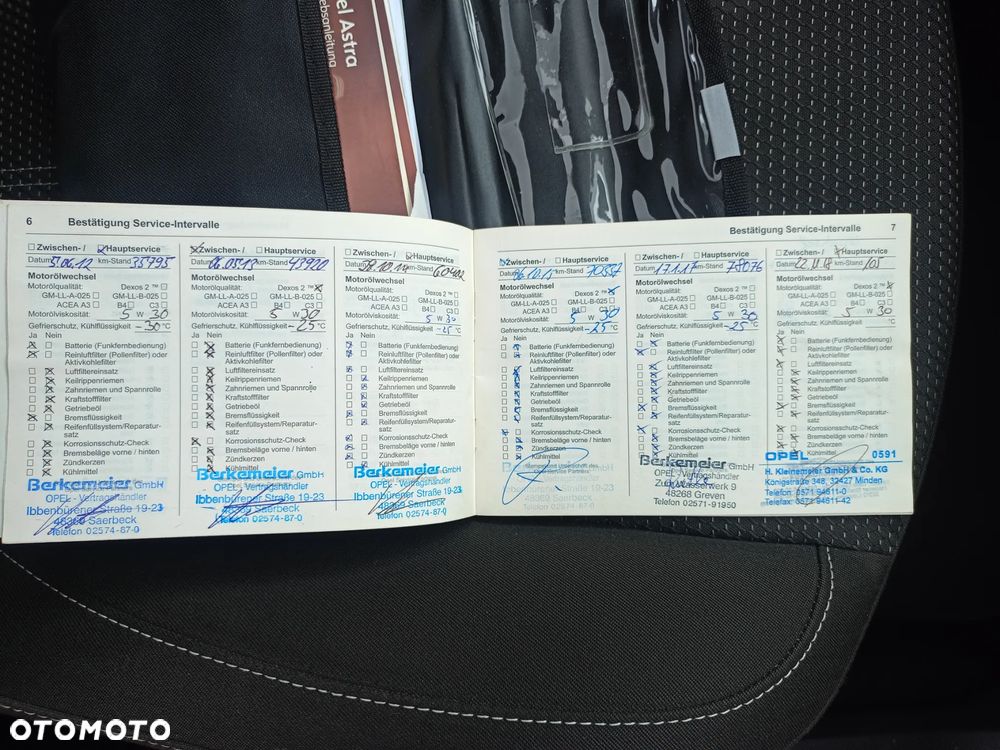 el Astra
ebsanleitung
6 Bestätigung Service-Intervalle
Zwischen- / Hauptservice
Datum 5.06.12 km-Stand 35795
Motorölwechsel
Motorölqualität: Dexos 2 ™
GM-LL-A-025 GM-LL-B-025
ACEA A3 B4 C3
Motorölviskosität: 5 W 30
Gefrierschutz, Kühlflüssigkeit -30 °C
Ja Nein
Batterie (Funkfernbedienung)
Reinluftfilter (Pollenfilter) oder
Aktivkohlefilter
Luftfiltereinsatz
Keilrippenriemen
Zahnriemen und Spannrolle
Kraftstofffilter
Getriebeöl
Bremsflüssigkeit
Reifenfüllsystem/Reparatur-
satz
Korrosionsschutz-Check
Bremsbeläge vorne / hinten
Zündkerzen
Kühlmittel
Berkemeier GmbH
OPEL - Vertragshändler
Ibbenbürener Straße 19-23
48369 Saerbeck
Telefon 02574-87-0
Zwischen- / Hauptservice
Datum 06.05.13 km-Stand 43920
Motorölwechsel
Motorölqualität: Dexos 2 ™
GM-LL-A-025 GM-LL-B-025
ACEA A3 B4 C3
Motorölviskosität: 5 W 30
Gefrierschutz, Kühlflüssigkeit -25 °C
Ja Nein
Batterie (Funkfernbedienung)
Reinluftfilter (Pollenfilter) oder
Aktivkohlefilter
Luftfiltereinsatz
Keilrippenriemen
Zahnriemen und Spannrolle
Kraftstofffilter
Getriebeöl
Bremsflüssigkeit
Reifenfüllsystem/Reparatur-
satz
Korrosionsschutz-Check
Bremsbeläge vorne / hinten
Zündkerzen
Kühlmittel
Berkemeier GmbH
OPEL - Vertragshändler
Ibbenbürener Straße 19-23
48369 Saerbeck
Telefon 02574-87-0
Zwischen- / Hauptservice
Datum km-Stand 60402
Motorölwechsel
Motorölqualität: Dexos 2 ™
GM-LL-A-025 GM-LL-B-025
ACEA A3 B4 C3
Motorölviskosität: 5 W 30
Gefrierschutz, Kühlflüssigkeit -25 °C
Ja Nein
Batterie (Funkfernbedienung)
Reinluftfilter (Pollenfilter) oder
Aktivkohlefilter
Luftfiltereinsatz
Keilrippenriemen
Zahnriemen und Spannrolle
Kraftstofffilter
Getriebeöl
Bremsflüssigkeit
Reifenfüllsystem/Reparatur-
satz
Korrosionsschutz-Check
Bremsbeläge vorne / hinten
Zündkerzen
Kühlmittel
Berkemeier GmbH
OPEL - Vertragshändler
Ibbenbürener Straße 19-23
48369 Saerbeck
Telefon 02574-87-0
Bestätigung Service-Intervalle 7
Zwischen- / Hauptservice
Datum km-Stand 70557
Motorölwechsel
Motorölqualität: Dexos 2 ™
GM-LL-A-025 GM-LL-B-025
ACEA A3 B4 C3
Motorölviskosität: 5 W 30
Gefrierschutz, Kühlflüssigkeit -25 °C
Ja Nein
Batterie (Funkfernbedienung)
Reinluftfilter (Pollenfilter) oder
Aktivkohlefilter
Luftfiltereinsatz
Keilrippenriemen
Zahnriemen und Spannrolle
Kraftstofffilter
Getriebeöl
Bremsflüssigkeit
Reifenfüllsystem/Reparatur-
satz
Korrosionsschutz-Check
Bremsbeläge vorne / hinten
Zündkerzen
Kühlmittel
Zwischen- / Hauptservice
Datum 17.1.17 km-Stand 78076
Motorölwechsel
Motorölqualität: Dexos 2 ™
GM-LL-A-025 GM-LL-B-025
ACEA A3 B4 C3
Motorölviskosität: 5 W 30
Gefrierschutz, Kühlflüssigkeit -25 °C
Ja Nein
Batterie (Funkfernbedienung)
Reinluftfilter (Pollenfilter) oder
Aktivkohlefilter
Luftfiltereinsatz
Keilrippenriemen
Zahnriemen und Spannrolle
Kraftstofffilter
Getriebeöl
Bremsflüssigkeit
Reifenfüllsystem/Reparatur-
satz
Korrosionsschutz-Check
Bremsbeläge vorne / hinten
Zündkerzen
Kühlmittel
Berkemeier GmbH
OPEL - Vertragshändler
Zum Wasserwerk 9
48268 Greven
Telefon 02571-91950
Zwischen- / Hauptservice
Datum km-Stand
Motorölwechsel
Motorölqualität: Dexos 2 ™
GM-LL-A-025 GM-LL-B-025
ACEA A3 B4 C3
Motorölviskosität: 5 W 30
Gefrierschutz, Kühlflüssigkeit °C
Ja Nein
Batterie (Funkfernbedienung)
Reinluftfilter (Pollenfilter) oder
Aktivkohlefilter
Luftfiltereinsatz
Keilrippenriemen
Zahnriemen und Spannrolle
Kraftstofffilter
Getriebeöl
Bremsflüssigkeit
Reifenfüllsystem/Reparatur-
satz
Korrosionsschutz-Check
Bremsbeläge vorne / hinten
Zündkerzen
Kühlmittel
OPEL 0591
H. Kleinemeier GmbH & Co. KG
Königstraße 348, 32427 Minden
Telefon 0571 94611-0
Telefax: 0571 9461-42
OTOMOTO